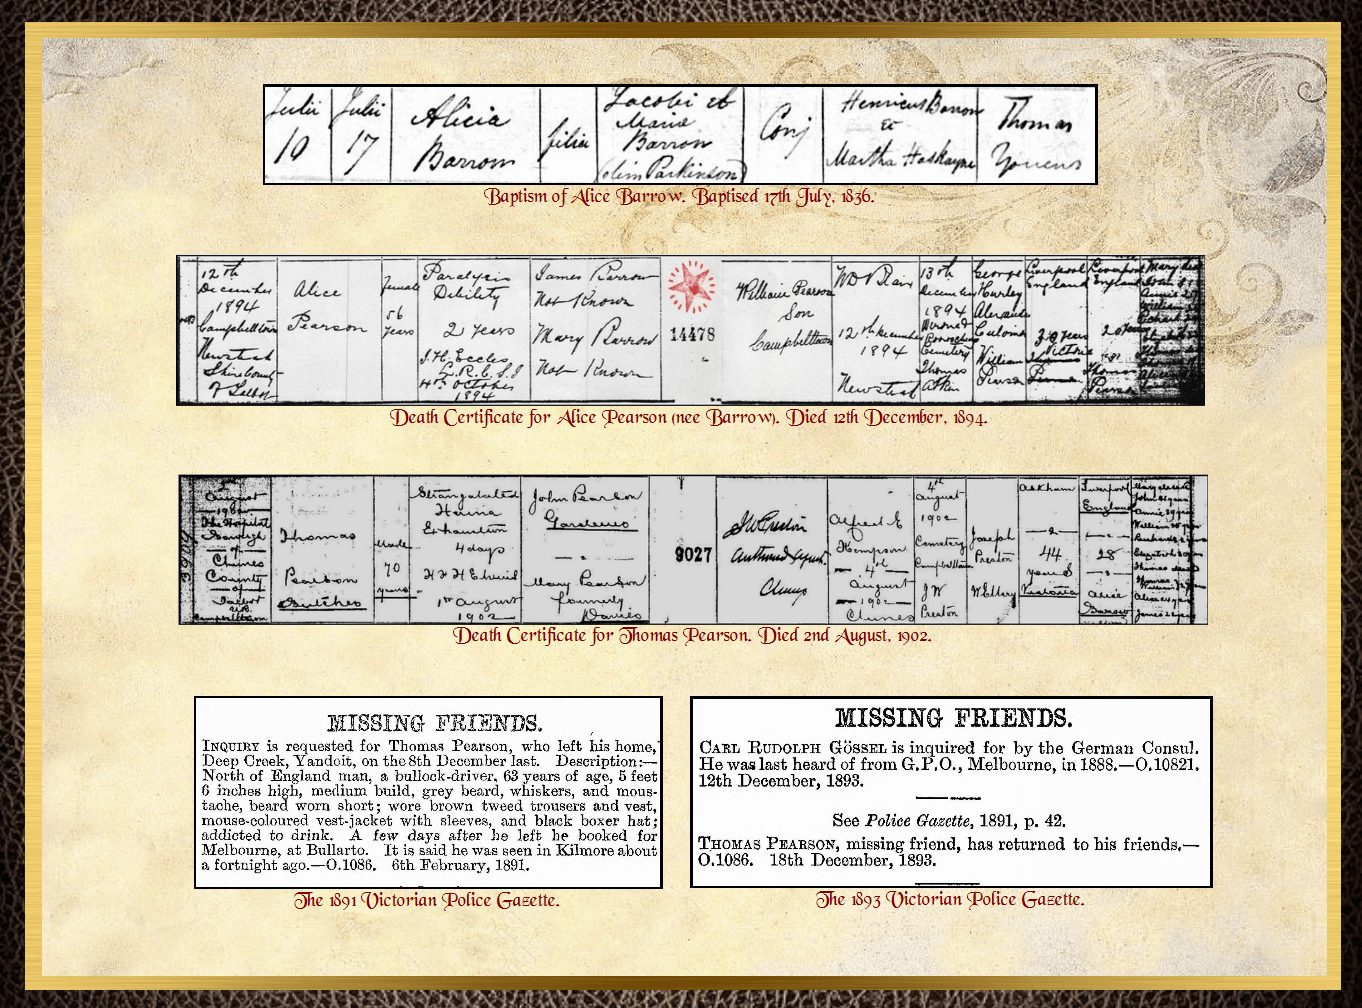 Julii
10
Julii
17
Alicia
Barrow
filia
Jacobi et
Mariæ
Barrow
(olim Parkinson)
Conj
Henricus Barrow
et
Martha Haskayne
Thomas
Baptism of Alice Barrow. Baptised 17th July, 1836.
12th
December
1894
Campbelltown
Newstead
Shire County
of Talbot
Alice
Pearson
female
56
years
Paralysis
Debility
2 years
J. H. Eccles
L.R.C.S.I
4th October
1894
James Barrow
Not Known
Mary Barrow
Not Known
14478
William Pearson
Son
Campbelltown
12th December
1894
Newstead
13th
December
1894
Cemetery
Thomas
Atkin
George
Hurley
Alexander
William
Pearson
Liverpool
England
30 Years
Victoria
Liverpool
England
20 Years
Thomas
Pearson
Death Certificate for Alice Pearson (nee Barrow). Died 12th December, 1894.
August
1902
The Hospital
Borough
of
Clunes
County
of
Talbot
U.R.
Campbelltown
Thomas
Pearson
Butcher
Male
70
years
Strangulated
Hernia
Exhaustion
4 days
1st August
1902
John Pearson
Gardener
Mary Pearson
formerly
Davies
9027
J W Preston
Authorised Agent
Clunes
Alfred E
4th
August
1902
Clunes
4th
August
1902
Cemetery
Campbelltown
J W
Preston
Joseph
Preston
W Ellery
44
years
Victoria
Liverpool
England
28
Alice
Barrow
Death Certificate for Thomas Pearson. Died 2nd August, 1902.
MISSING FRIENDS.
INQUIRY is requested for Thomas Pearson, who left his home,
Deep Creek, Yandoit, on the 8th December last. Description:—
North of England man, a bullock-driver, 63 years of age, 5 feet
6 inches high, medium build, grey beard, whiskers, and mous-
tache, beard worn short; wore brown tweed trousers and vest,
mouse-coloured vest-jacket with sleeves, and black boxer hat;
addicted to drink. A few days after he left he booked for
Melbourne, at Bullarto. It is said he was seen in Kilmore about
a fortnight ago.—O.1086. 6th February, 1891.
The 1891 Victorian Police Gazette.
MISSING FRIENDS.
CARL RUDOLPH GÖSSEL is inquired for by the German Consul.
He was last heard of from G.P.O., Melbourne, in 1888.—O.10821.
12th December, 1893.
See Police Gazette, 1891, p. 42.
THOMAS PEARSON, missing friend, has returned to his friends.—
O.1086. 18th December, 1893.
The 1893 Victorian Police Gazette.